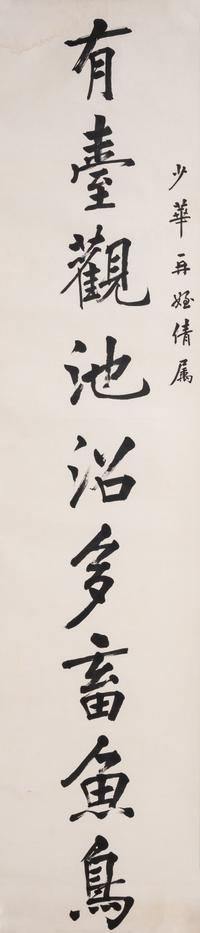 少華再姪倩屬
有臺觀池沼多畜魚鳥